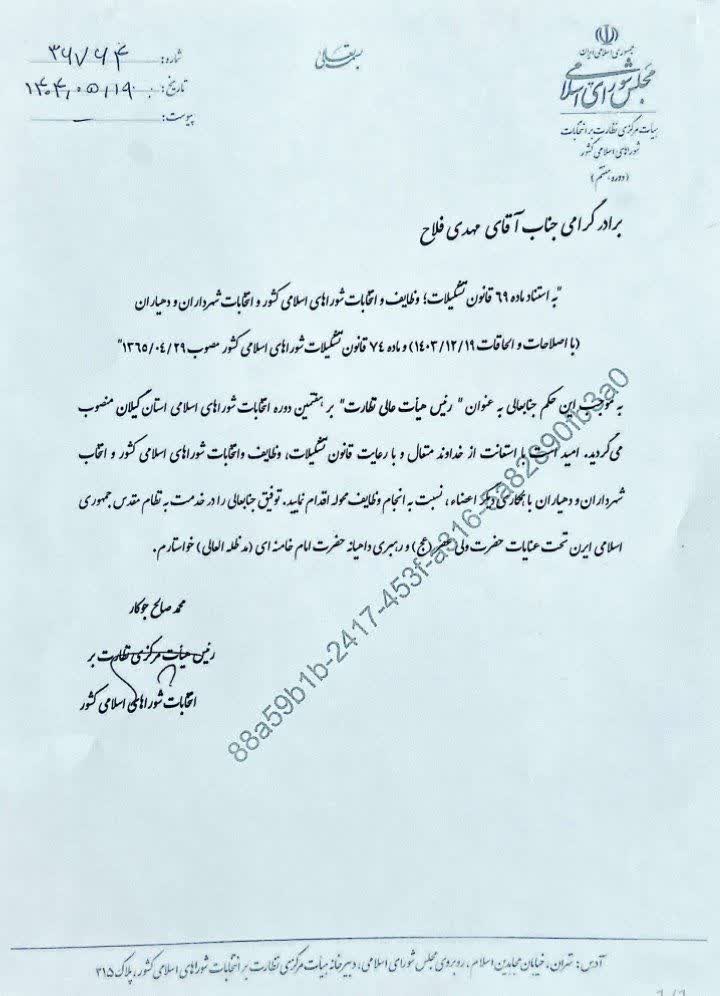 جمهوری اسلامی ایران
مجلس شورای اسلامی
هیأت مرکزی نظارت بر انتخابات
شوراهای اسلامی کشور
(دوره هفتم)
بسمه تعالی
شماره: ۳۶۷۶۴
تاریخ: ۱۴۰۴,۰۵,۱۹
پیوست: –
برادر گرامی جناب آقای مهدی فلاح
"به استناد ماده ۶۹ قانون تشکیلات؛ وظایف و انتخابات شوراهای اسلامی کشور و انتخابات شهرداران و دهیاران
(با اصلاحات و الحاقات ۱۴۰۳/۱۲/۱۹) و ماده ۷۴ قانون تشکیلات شوراهای اسلامی کشور مصوب ۱۳۶۵/۰۴/۲۹"
به موجب این حکم جنابعالی به عنوان " رئیس هیأت عالی نظارت" بر هفتمین دوره انتخابات شوراهای اسلامی استان گیلان منصوب
می‌گردید. امید است با استعانت از خداوند متعال و با رعایت قانون تشکیلات، وظایف وانتخابات شوراهای اسلامی کشور و انتخاب
شهرداران و دهیاران با همکاری دیگر اعضاء، نسبت به انجام وظایف محوله اقدام نمایید. توفیق جنابعالی را در خدمت به نظام مقدس جمهوری
اسلامی ایرن تحت عنایات حضرت ولی عصر (عج) و رهبری داهیانه حضرت امام خامنه ای (مدظله العالی) خواستارم.
محمد صالح جوکار
رئیس هیأت مرکزی نظارت بر
انتخابات شوراهای اسلامی کشور
آدرس: تهران، خیابان مجاهدین اسلام، روبروی مجلس شورای اسلامی، دبیرخانه هیأت مرکزی نظارت بر انتخابات شوراهای اسلامی کشور، پلاک ۳۱۵